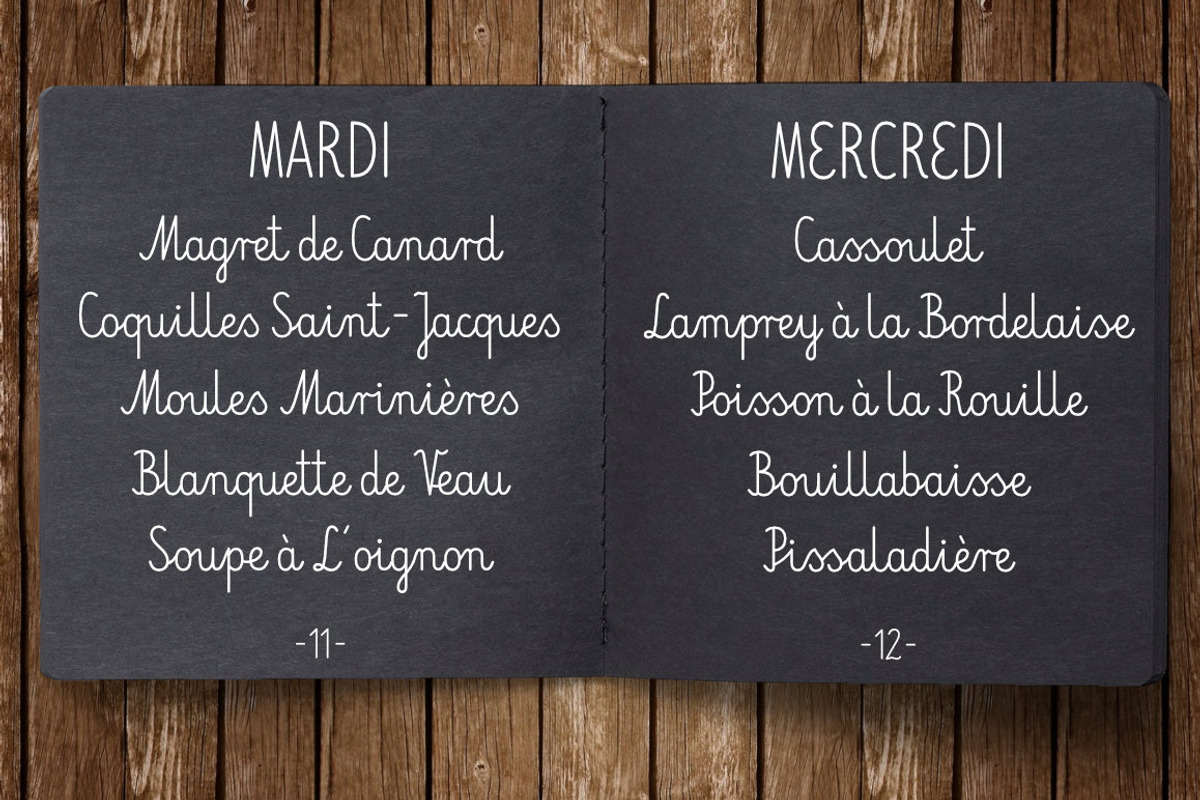 MARDI
Magret de Canard
Coquilles Saint-Jacques
Moules Marinières
Blanquette de Veau
Soupe à L'oignon
-11-
MERCREDI
Cassoulet
Lamprey à la Bordelaise
Poisson à la Rouille
Bouillabaisse
Pissaladière
-12-